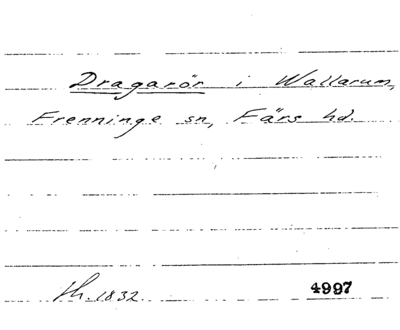 Dragarör i Wallarum,
Frenninge sn, Färs hd.
th. 1832. 4997